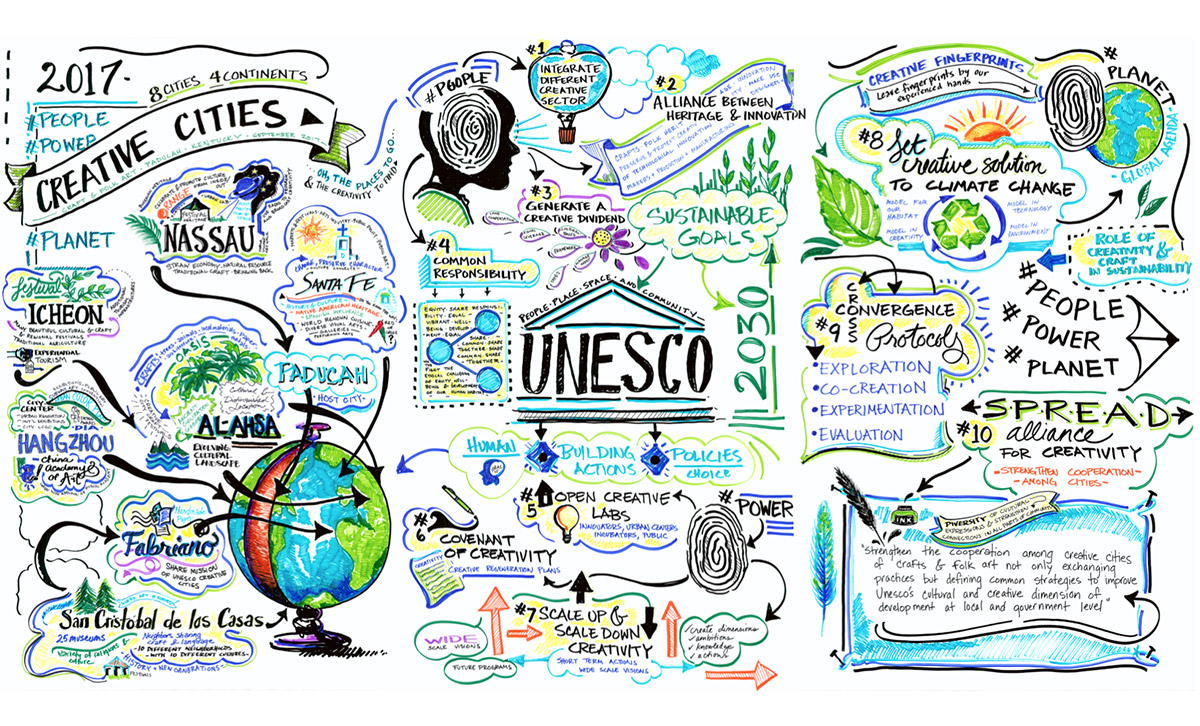 2017-
8 CITIES 4 CONTINENTS
#PEOPLE
#POWER
CREATIVE CITIES
CRAFT & FOLK ART PADUCAH - KENTUCKY - SEPTEMBER 2017
OH, THE PLACES TO GO
& THE CREATIVITY
TO FIND
#PLANET
FESTIVAL
NASSAU
STRAW ECONOMY, NATURAL RESOURCE
TRADITIONAL CRAFT - BRINGING BACK
Festival
ICHEON
BEAUTIFUL CULTURAL & CRAFT
& REGIONAL FESTIVALS
TRADITIONAL AGRICULTURE
EXPERIENTIAL
TOURISM
CHANGE, PRESERVE CHARACTER
SANTA FE
HISTORY & CULTURE
NATIVE AMERICAN HERITAGE
SPANISH INFLUENCE
WORLD RENOWN CUISINE
DIVERSE VISUAL ARTS
GALLERIES
PERFORMING ARTS
OASIS
Cultural
Distinguished
Location
AL-AHSA
EVOLVING
CULTURAL
LANDSCAPE
PADUCAH
HOST CITY
CITY
CENTER
HANGZHOU
China
Academy
of Art
Handmade
Paper
Fabriano
SHARE MISSION
OF UNESCO CREATIVE
CITIES
San Cristobal de los Casas
25 MUSEUMS
Variety of religions
culture
Neighbors sharing
craft & language
- 10 DIFFERENT NEIGHBORHOODS
- WITH 10 DIFFERENT CULTURES -
HISTORY + NEW GENERATIONS -
FESTIVALS
#PEOPLE
#1
INTEGRATE
DIFFERENT
CREATIVE
SECTOR
#2
ALLIANCE BETWEEN
HERITAGE & INNOVATION
CRAFTS FOLK HERIT
OF TECHNOLOGICAL INNOVATION
MAKERS + PRODUCTION + MANUFACTURING
#3
GENERATE A
CREATIVE DIVIDEND
SUSTAINABLE
GOALS
2030
#4
COMMON
RESPONSIBILITY
EQUITY: SHARE RESPONSI-
BILITY EQUAL -
VIBRANT WELL
BEING - DEVELOP-
MENT EQUAL
SHARE -
COMMON - SHARE
TOGETHER - SHARE
COMMON - SHARE
- TOGETHER -
PEOPLE · PLACE · SPACE · AND COMMUNITY
UNESCO
HUMAN
BUILDING
ACTIONS
POLICIES
CHOICE
#5
OPEN CREATIVE
LABS
INNOVATORS, URBAN CENTERS
INCUBATORS, PUBLIC
#POWER
#6
COVENANT
OF CREATIVITY
CREATIVITY
CREATIVE REGENERATION PLANS
#7
SCALE UP &
SCALE DOWN
CREATIVITY
SHORT TERM ACTIONS
WIDE SCALE VISIONS
WIDE
SCALE VISIONS
FUTURE PROGRAMS
create dimensions
ambitions
knowledge
actions
CREATIVE FINGERPRINTS
Leave fingerprints by our
experienced hands
#PLANET
-GLOBAL AGENDA-
#8 Set
creative solution
TO CLIMATE CHANGE
MODEL FOR
OUR
HABITAT
MODEL IN
TECHNOLOGY
MODEL IN
CREATIVITY
MODEL IN
ENVIRONMENT
ROLE OF
CREATIVITY &
CRAFT
IN SUSTAINABILITY
#9
CROSS
CONVERGENCE
Protocols
•EXPLORATION
•CO-CREATION
•EXPERIMENTATION
•EVALUATION
#PEOPLE
#POWER
#PLANET
#10
S·P·R·E·A·D
alliance
FOR CREATIVITY
-STRENGTHEN COOPERATION-
-AMONG CITIES-
INK
DIVERSITY OF CULTURAL
EXPRESSIONS & STRENGTHEN
CONNECTIONS IN ALL PARTS OF COMMUNITY
"Strengthen the cooperation among creative cities
of crafts & folk art not only exchanging
practices but defining common strategies to improve
Unesco's cultural and creative dimension of
development at local and government level"